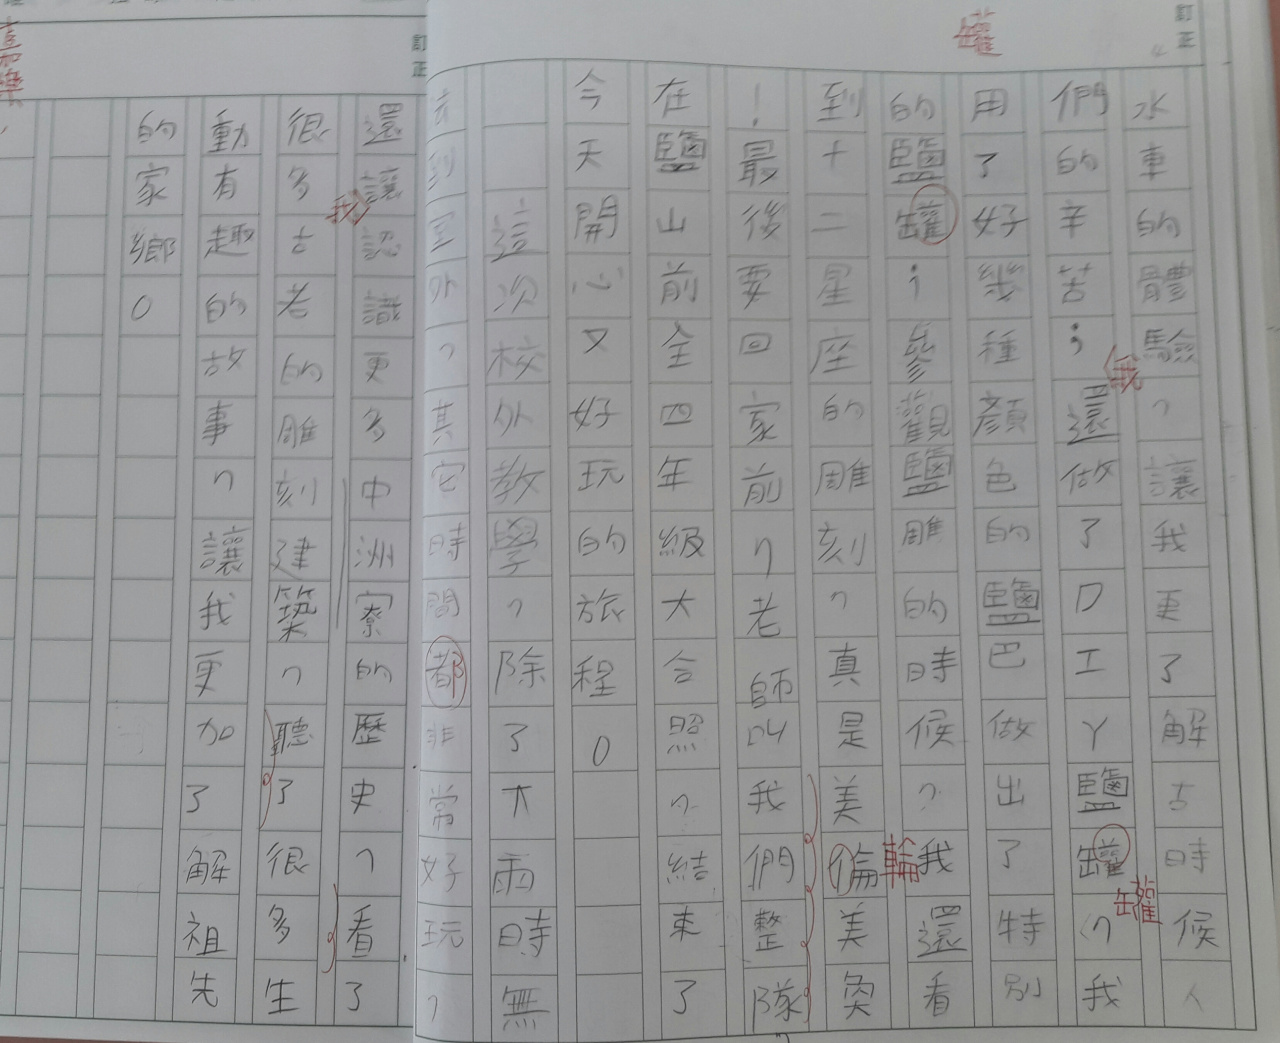 訂正
罐
水車的體驗，讓我更了解古時候人
們的辛苦；還做了DIY鹽罐，我
我
罐
用了好幾種顏色的鹽巴做出了特別
的鹽罐；參觀鹽雕的時候，我還看
到十二星座的雕刻，真是美倫美奐
輪
！最後要回家前，老師叫我們整隊
在鹽山前全四年級大合照，結束了
今天開心又好玩的旅程。
這次校外教學，除了大雨時無
去到室外，其它時間都非常好玩，
訂正
還讓認識更多中洲寮的歷史，看了
我
很多古老的雕刻建築，聽了很多生
動有趣的故事，讓我更加了解祖先
的家鄉。